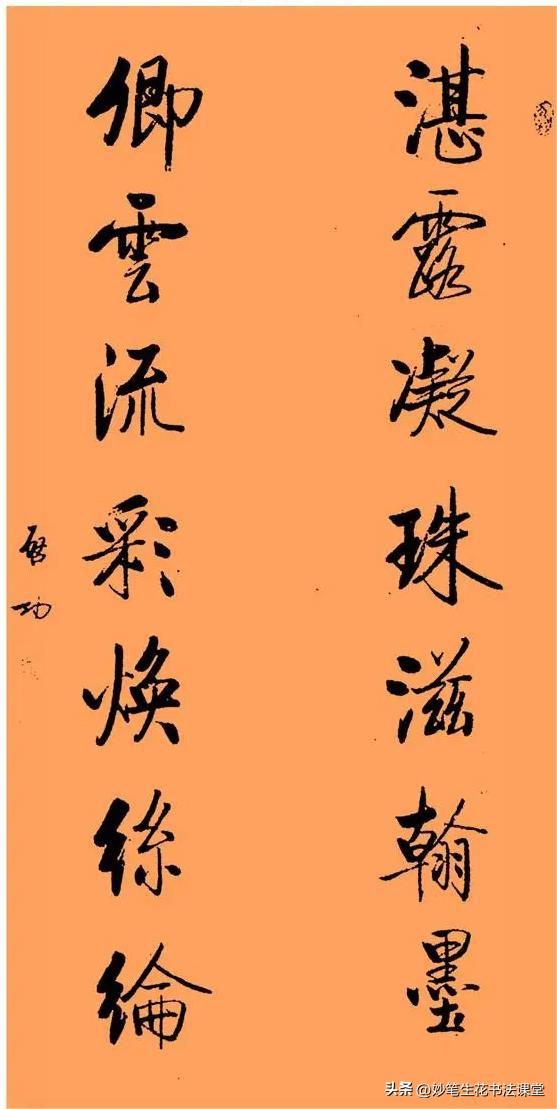 湛露凝珠滋翰墨
卿雲流彩焕絲綸
啓功
头条 @妙笔生花书法课堂